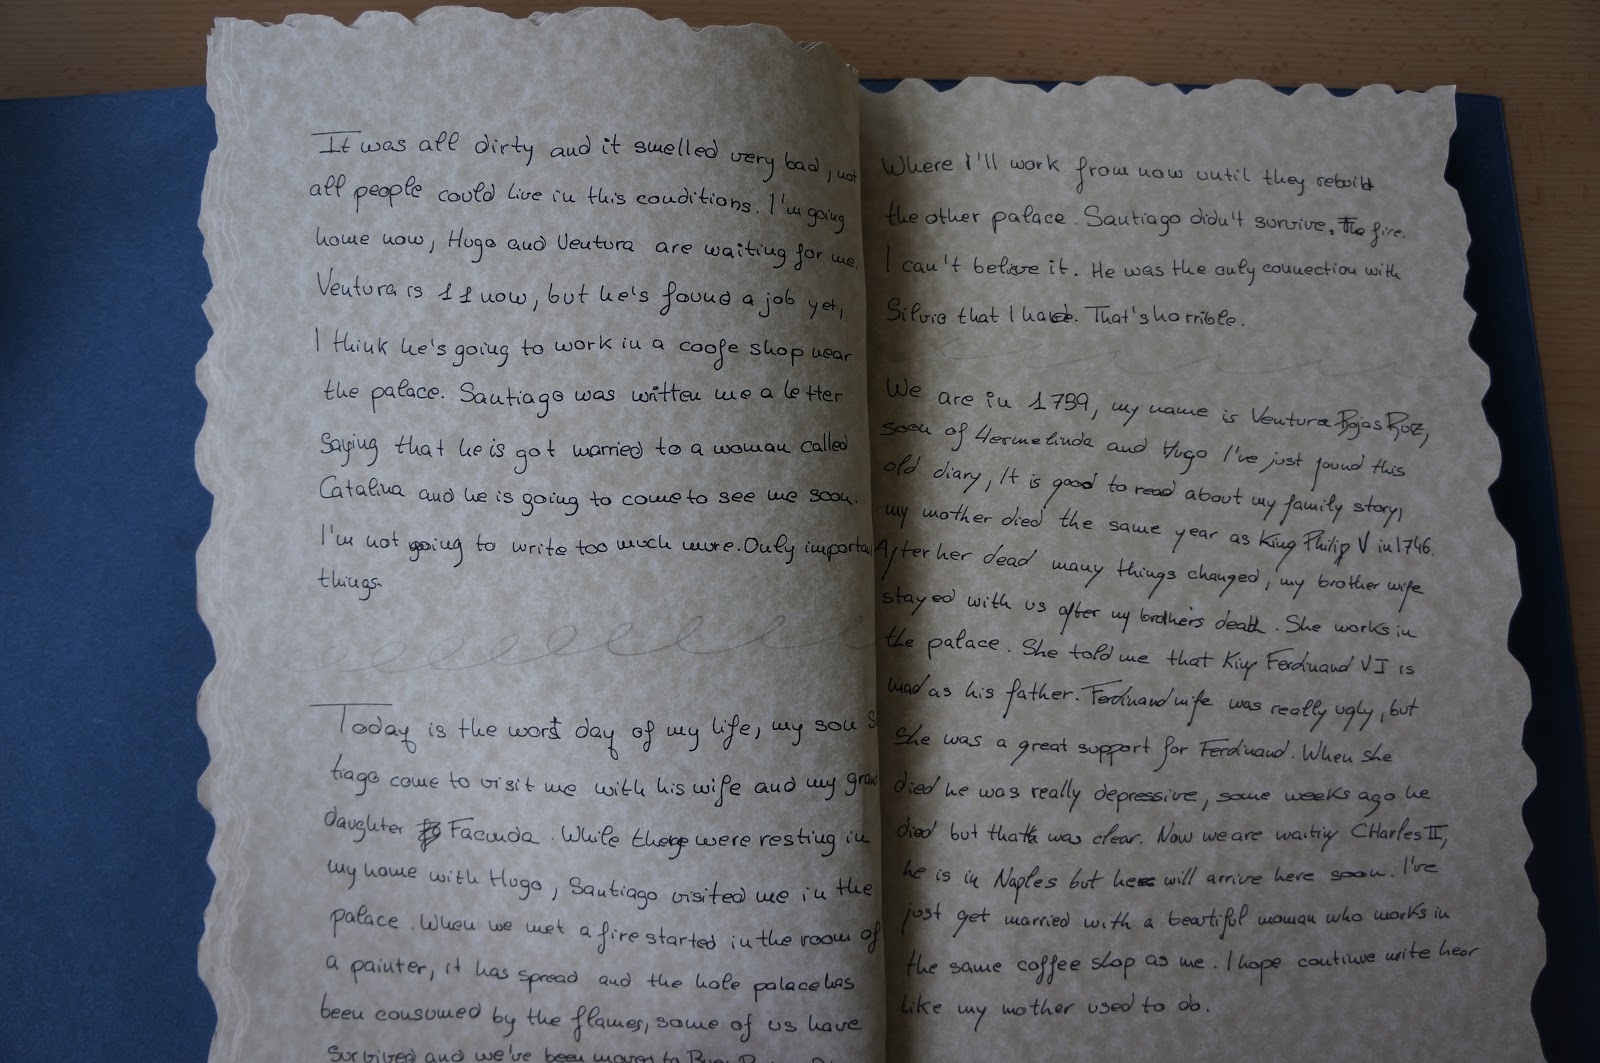 It was all dirty and it smelled very bad, not
all people could live in this conditions. I'm going
home now, Hugo and Ventura are waiting for me.
Ventura is 11 now, but he's found a job yet,
I think he's going to work in a coofe shop near
the palace. Santiago was written me a letter
Saying that he is got married to a woman called
Catalina and he is going to come to see me soon.
I'm not going to write too much more. Only important
things.
Today is the worst day of my life, my son S
tiago come to visit me with his wife and my gran
daughter Facunda. While there were resting in
my home with Hugo, Santiago visited me in the
palace. When we met a fire started in the room of
a painter, it has spread and the hole palace has
been consumed by the flames, some of us have
survived and we've been moved to
Where I'll work from now until they rebuild
the other palace. Santiago didn't survive, the fire.
I can't believe it. He was the only connection with
Silvio that I have. That's horrible.
We are in 1759, my name is Ventura Rojas Ruiz,
soon of Hermelinda and Hugo I've just found this
old diary, It is good to read about my family story,
my mother died the same year as King Philip V in 1746.
After her dead many things changed, my brother wife
stayed with us after my brother's death. She works in
the palace. She told me that King Ferdinand VI is
mad as his father. Ferdinand wife was really ugly, but
She was a great support for Ferdinand. When she
died he was really depressive, some weeks ago he
died but thatk was clear. Now we are waiting CHarles II,
he is in Naples but here will arrive here soon. I've
just get married with a beautiful woman who works in
the same coffee shop as me. I hope continue write hear
like my mother used to do.